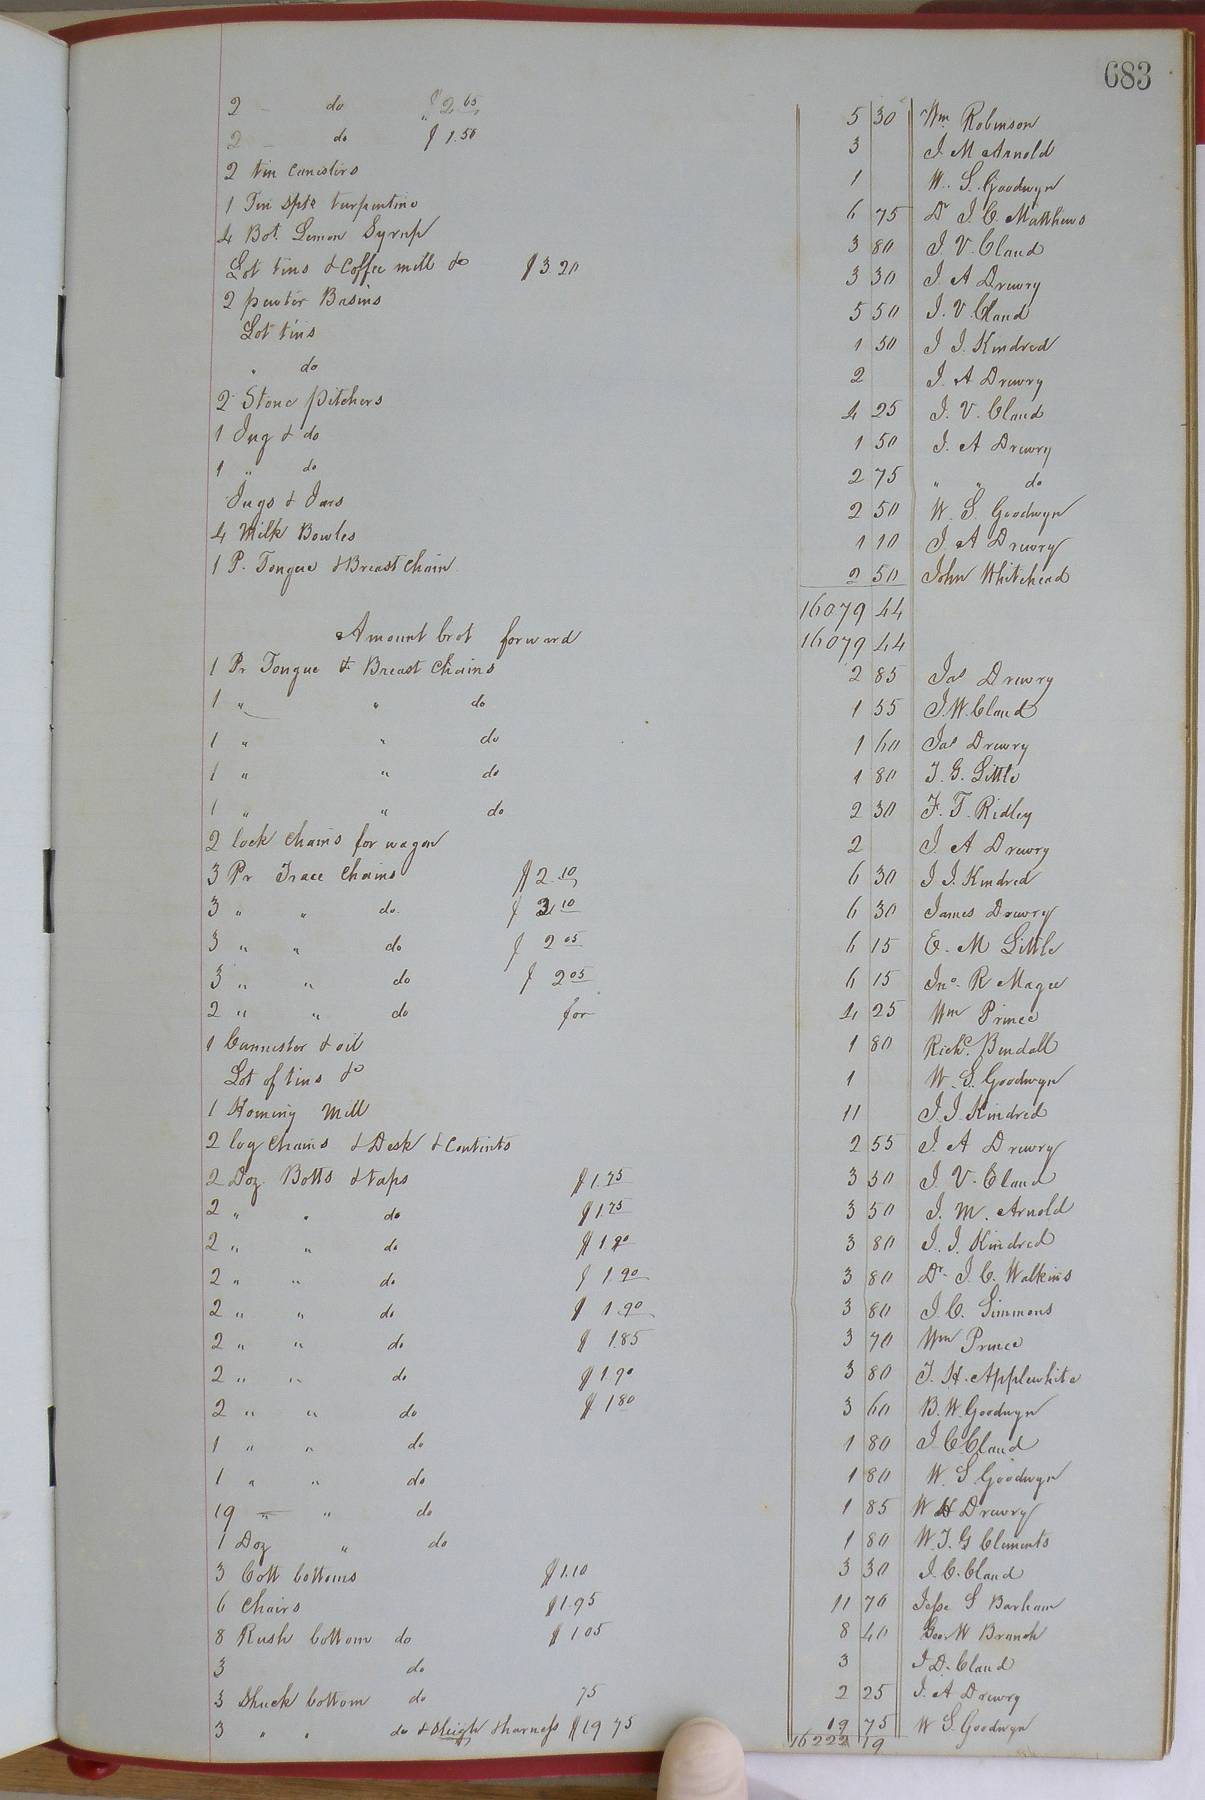 683
2 - do $2.65 5 30 Wm Robinson
2 - do $1.50 3 J. M Arnold
2 tin canisters 1 W. S. Goodwyn
1 Tin spts turpentine 6 75 Dr J. C. Matthews
4 Bot. Lemon Syrup 3 80 J. V. Cland
Lot tins & Coffee mill &c $3.20 3 30 J. A Drewry
2 pewter Basins 5 50 J. V. Cland
Lot tins 1 50 J J. Kindred
" do 2 J. A Drewry
2 Stone pitchers 4 25 J. V. Cland
1 Jug & do 1 50 J. A Drewry
1 " do 2 75 " " do
Jugs & Jars 2 50 W. S. Goodwyn
4 Milk Bowles 1 10 J. A Drewry
1 P. Tongue & Breast Chain 2 50 John Whitehead
16079 44
Amount brot forward 16079 44
1 Pr Tongue & Breast Chains 2 85 Jas Drewry
1 " " do 1 55 J. W. Cland
1 " " do 1 60 Jas Drewry
1 " " do 1 80 J. G. Little
1 " " do 2 30 F. T. Ridley
2 lock chains for wagon 2 J. A Drewry
3 Pr Trace Chains $2.10 6 30 J J. Kindred
3 " " do $2.10 6 30 James Drewry
3 " " do $2.05 6 15 E. M Little
3 " " do $2.05 6 15 Jno. R Magee
2 " " do for 4 25 Wm Prince
1 Cannister & oil 1 80 Richd. Bendall
Lot of tins &c 1 W. S. Goodwyn
1 Homing Mill 11 J. J. Kindred
2 log chains & Desk & Contints 2 55 J. A Drewry
2 Doz. Botts & taps $1.75 3 50 J. V. Cland
2 " " do $1.75 3 50 J. M. Arnold
2 " " do $1.90 3 80 J. J. Kindred
2 " " do $1.90 3 80 Dr. J. C. Watkins
2 " " do $1.90 3 80 J. C. Simmons
2 " " do $1.85 3 70 Wm Prince
2 " " do $1.90 3 80 J. H. Applewhite
2 " " do $1.80 3 60 B. W. Goodwyn
1 " " do 1 80 J. C. Cland
1 " " do 1 80 W. S Goodwyn
19 " " do 1 85 W H Drewry
1 Doz " do 1 80 W. J. G Clements
3 Cott bottoms $1.10 3 30 J. C. Cland
6 Chairs $1.95 11 70 Jesse S Barham
8 Rush bottom do $1.05 8 40 Geo. W Branch
3 do 3 J D. Cland
3 Shuck bottom do 75 2 25 J. A Drewry
3 " " do & Sleigh & harness $19 75 19 75 W S. Goodwyn
16222 19